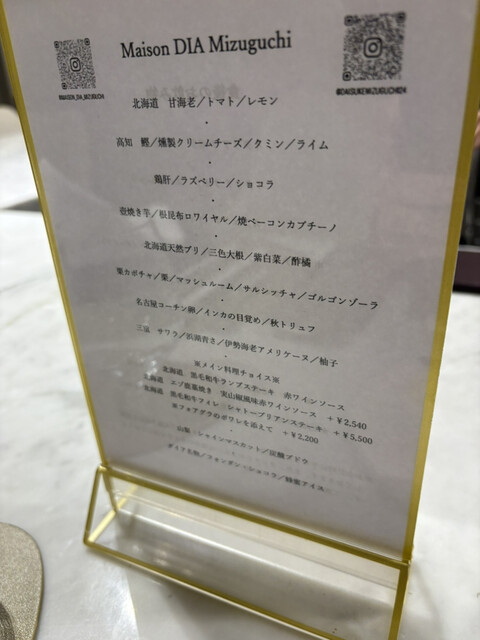 Maison DIA Mizuguchi
@MAISON_DIA_MIZUGUCHI
@DAISUKEMIZUGUCHI24
北海道 甘海老／トマト／レモン
・
高知 鰹／燻製クリームチーズ／クミン／ライム
・
鶏肝／ラズベリー／ショコラ
・
壺焼き芋／根昆布ロワイヤル／焼ベーコンカプチーノ
・
北海道天然ブリ／三色大根／紫白菜／酢橘
・
栗カボチャ／栗／マッシュルーム／サルシッチャ／ゴルゴンゾーラ
・
名古屋コーチン卵／インカの目覚め／秋トリュフ
・
三河 サワラ／浜湖青さ／伊勢海老アメリケーヌ／柚子
・
※メイン料理チョイス※
北海道 黒毛和牛ランプステーキ 赤ワインソース
北海道 エゾ鹿藁焼き 実山椒風味赤ワインソース ＋￥2,540
北海道 黒毛和牛フィレ シャトーブリアンステーキ ＋￥5,500
※フォアグラのポワレを添えて ＋￥2,200
・
山梨 シャインマスカット／巨峰ブドウ
・
フォンダンショコラ／蜂蜜アイス